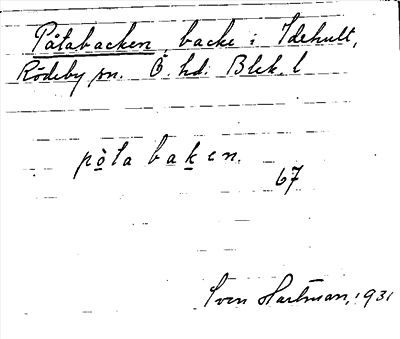 Påtabacken, backe i Idehult,
Rödeby sn. Ö. hd. Blek. l
pò̱ta baḵen.
67
Sven Hartman, 1931